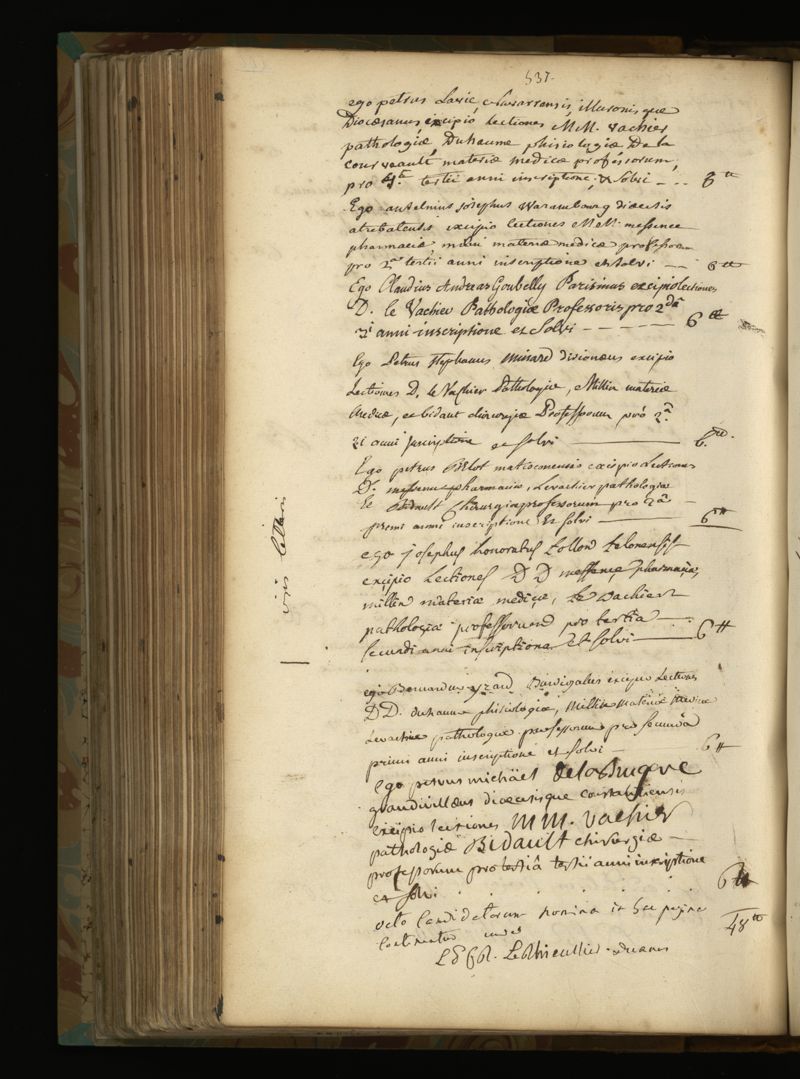 537.
ego petrus Lavie, navarrensis,
Diocæsanus, excipio lectiones MM. vachier
pathologiæ, Duhaume phisiologiæ De la
courveault materiæ medicæ professorum,
pro 4.ta tertii anni inscriptione, & solvi --- 6 tt
Ego antelmius josephus Warambourg diœcesis
atrebatensis excipio lectiones MM. messence
pharmaciæ millin materiæ medicæ professorum
pro 2.a tertii anni inscriptione et solvi --- 6 tt
Ego Claudius Andreas Goubelly Parisinus excipio lectiones
D. le Vachier Pathologiæ Professoris pro 2.da
2.i anni inscriptione et Solvi ------ 6 tt
Ego Petrus Stephanus minard divionæus excipio
Lectiones D. le Vachier Pathologiæ, Millin materiæ
Medicæ, et bidaut chirurgiæ Professorum pro 2.a
2i anni inscriptione et solvi 6. tt
Ego petrus Belot matisconensis excipio Lectiones
D. messence pharmaciæ, Levachier pathologiæ
Et Bidault chirurgiæ professorum pro 2.a
primi anni inscriptione Et solvi 6 tt
ego josephus honoratus tollon telonensis
excipio Lectiones DD messence pharmaciæ,
millin materiæ mediçæ, Le vachier
pathologiæ professorum pro tertia
secundi anni inscriptione et solvi 6 tt
ego Bernardus yzard Burdigalus excipio Lectiones
DD. duhaume phisiologiæ, Millin materiæ Medicæ
Levachier pathologiæ professorum pro secunda
primi anni inscriptione et solvi 6 tt
Ego petrus michäel delabrugere
grandivillæus diœcesisque constantiensis
excipio lectiones MM. vachier
pathologiæ Bidault chirurgiæ
professorum pro tertiâ tertii anni inscriptione
et solvi 6 tt
octo candidatorum nomina in hac pagina
continentur 48 tt
Le Thieullier. decanus